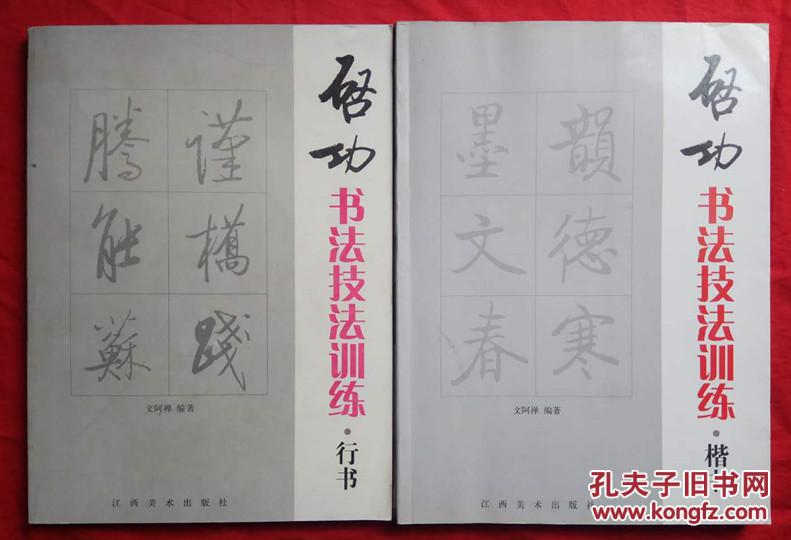 启功
书法技法训练·行书
謹
橋
踐
騰
能
蘇
文阿禅 编著
江西美术出版社
启功
书法技法训练·楷
韻
德
寒
墨
文
春
文阿禅 编著
江西美术出版社
孔夫子旧书网
www.kongfz.com